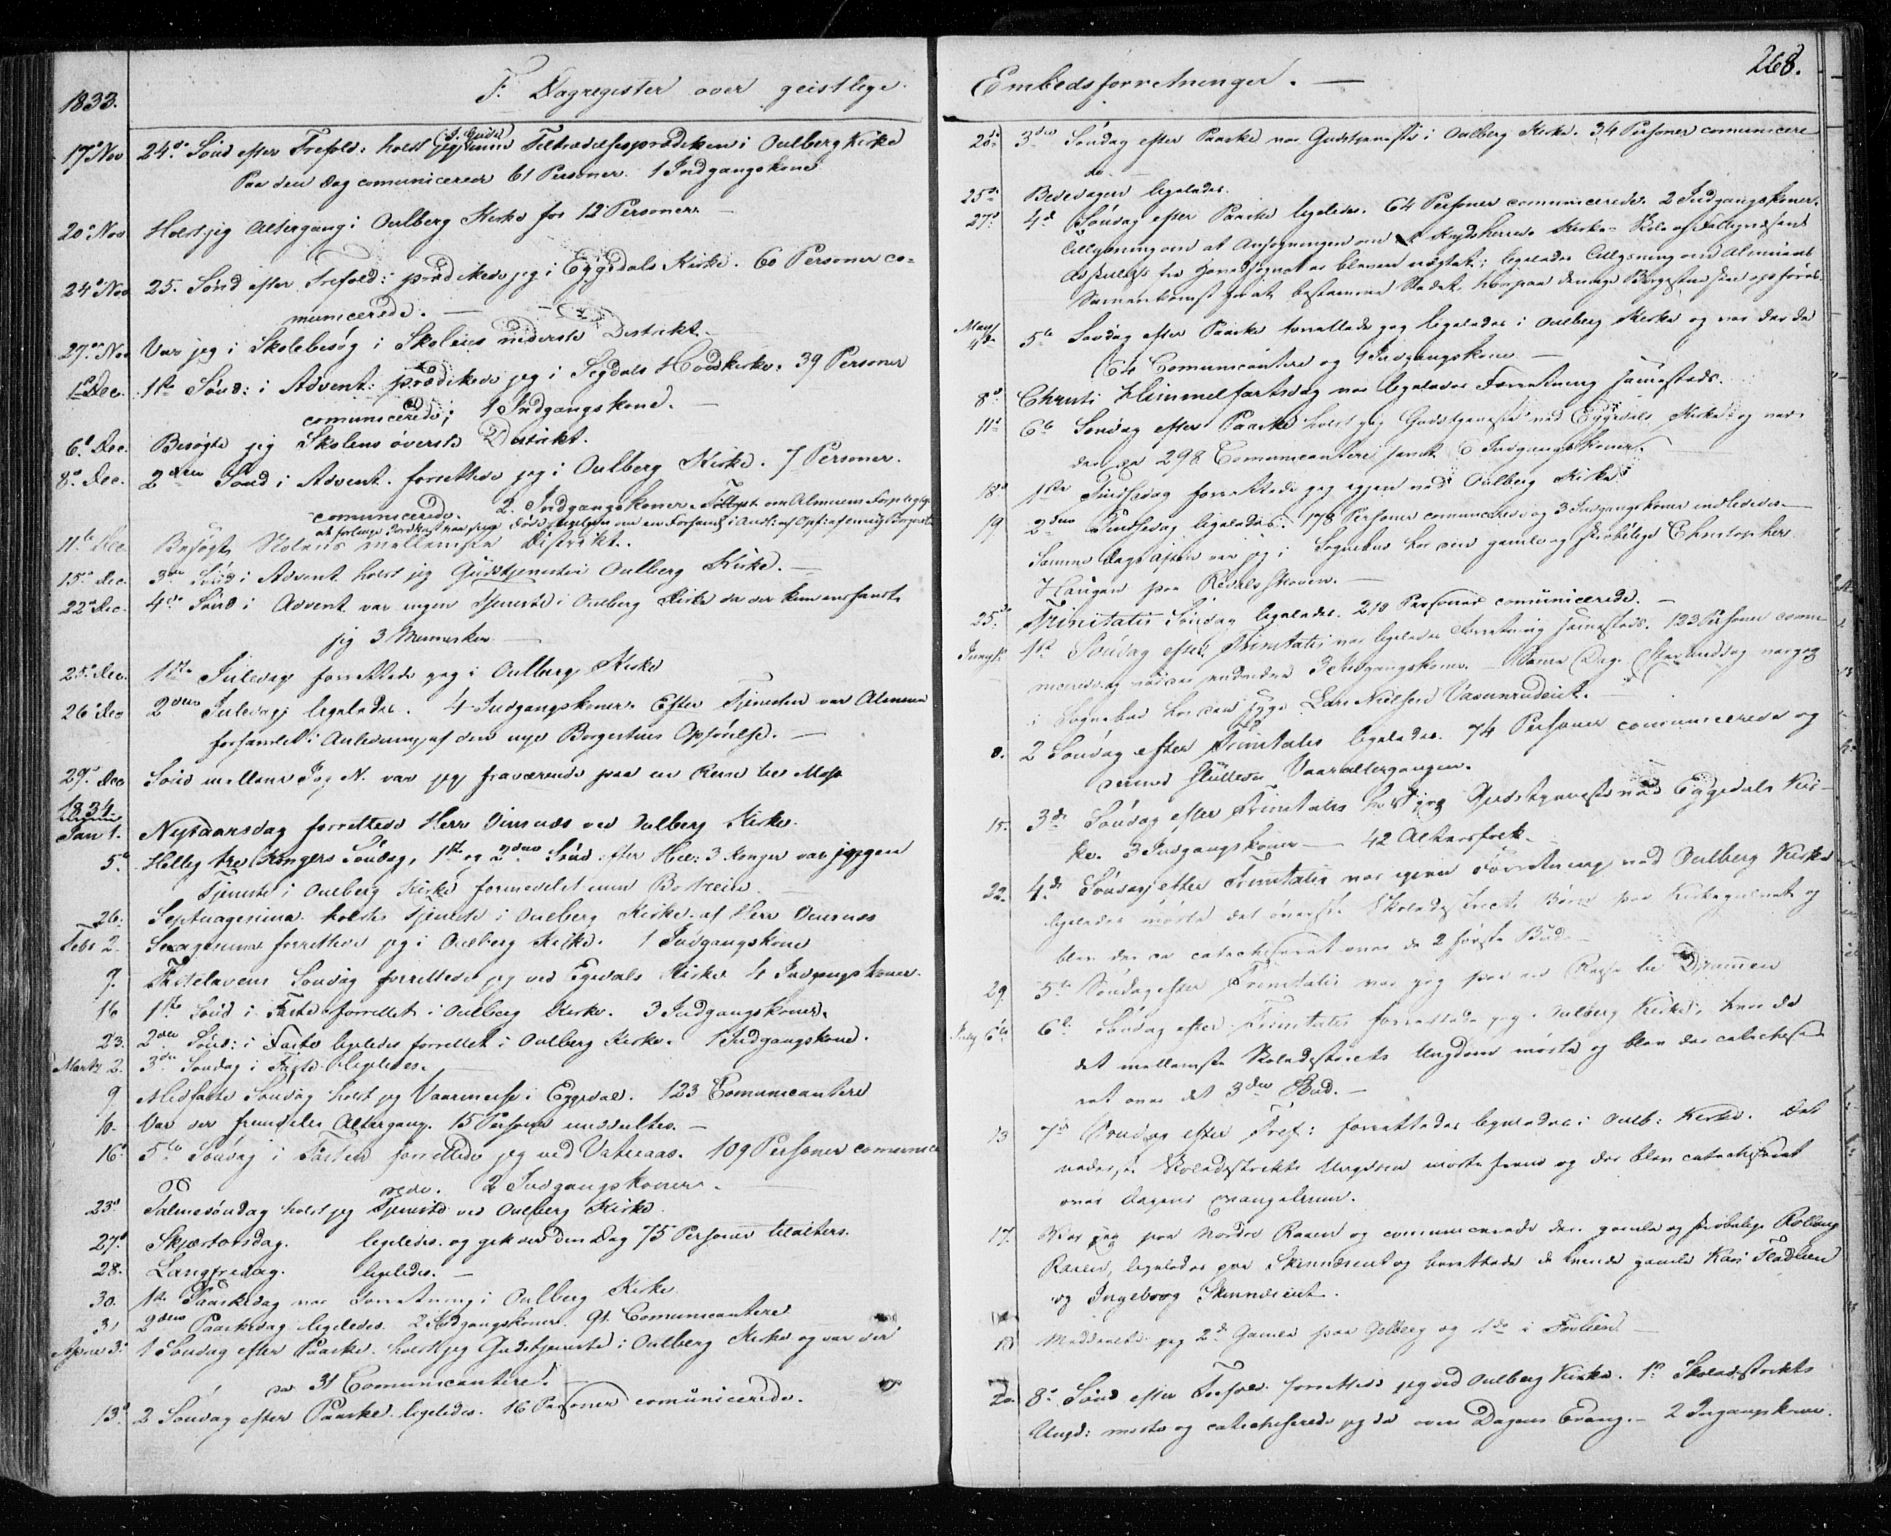 F. Dagregister over geistlige
1833.
17de Nov 24de Sönd efter Trefold: holdt jeg min Tiltrædelsesprædiken i Oulberg Kirke
Paa den Dag comunicerede 61 Personer. 1 Indgangskone
20de Nov Holdt jeg Altergang i Oulberg Kirke for 12 Personer. —
24de Nov 25. Sönd efter Trefold: prædikede jeg i Eggedals Kirke. 60 Personer co-
municerede. —
27de Nov Var jeg i Skolebesög i Skolens nederste Distrikt. —
1ste Dec. 1ste Sönd: i Advent: prædikede jeg i Sigdals Hovdkirke. 39 Personer
comunicerede; 1 Indgangskone. —
6te Dec. Besögte jeg Skolens överste Distrikt.
8de Dec. 2den Sönd i Advent. forrettede jeg i Oulberg Kirke. 7 Personer.
comunicerede. 2 Indgangskoner.
11te Dec Besögte Skolens mellemste Distrikt.
15de Dec. 3die Sönd i Advent holdt jeg Gudstjeneste i Oulberg Kirke. —
22de Dec. 4de Sönd i Advent var ingen Tjeneste i Oulberg Kirke da der kun
jeg 3 Mennesker —
25de Dec. 1ste Juledag forrettede jeg i Oulberg Kirke
26 Dec 2den Juledag ligeledes. 4 Indgangskoner. Efter Tjenesten var Almuen
forsamlet i Anledning af den nye Borgestues Opförelse. —
29de Dec Sönd mellem J og N. var jeg fraværende paa en Reise til Moss
1834
Jan 1. Nytaarsdag forrettede Herr Vinsnes ved Oulberg Kirke.
5te Hellig tre Kongers Söndag, 1ste og 2den Sönd efter Hel: 3 Konger var ingen
Tjeneste i Oulberg Kirke formedelst min
26. Septuagesima holdtes Tjeneste i Oulberg Kirke af Herr Vinsnes
Febr 2. Sexagesima forrettede jeg i Oulberg Kirke. 1 Indgangskone
9. Fastelavens Söndag forrettede jeg ved Egedals Kirke 4 Indgangskoner.
16 1ste Sönd i Faste forrettet i Oulberg Kirke. 3 Indgangskoner.
23. 2den Sönd: i Faste ligeledes forrettet i Oulberg Kirke. 1 Indgangskone.
Marts 2. 3die Söndag i Faste ligeledes.
9 Midfaste Söndag holdt jeg Vaarmesse i Eggedal. 123 Comunicantere
10. Var der fremdeles Altergang. 15 Personer
16de 5te Söndag i Fasten forrettede jeg ved Vatnaas. 109 Personer comunice
rede. 2 Indgangskoner. —
23de Palmesöndag holdt jeg Tjeneste ved Oulberg Kirke.
27de Skjærtorsdag. ligeledes. og gik der den Dag 75 Personer tilalters.
28. Langfredag. ligeledes. —
30. 1ste Paaskedag var Forretning i Oulberg Kirke
31 2den Paaskedag ligeledes. 2 Indgangskoner. 91 Comunicantere
April 1 Söndag efter Paaske. holdt jeg Gudstjeneste i Oulberg Kirke og var der
da 31 Comunicantere. —
13de 2 Söndag efter Paaske ligeledes. 16 Personer comunicerede.
Embedsforretninger. —
268.
20de 3die Söndag efter Paaske var Gudstjeneste i Oulberg Kirke. 34 Personer comunicere
de. —
25de Bededagen ligeledes.
27de 4de Söndag efter Paaske ligeledes. 64 Personer communicerede. 2 Indgangskoner.
Oplysning om at Ansögningen om Kirke-
fra Hovedsognet er bleven nægtet; ligeledes Oplysning om Almuens
Sammenkomst for at bestemme Stedet, hvorpaa den nye Borgestue skal opföres
May 4de 5te Söndag efter Paaske forrettede jeg ligeledes i Oulberg Kirke og var der da
64 Comunicantere og 1 Indgangskone —
8de Christi Himmelfartsdag var ligeledes Forretning sammesteds.
11te 6te Söndag efter Paaske holdt jeg Gudstjeneste ved Eggedals Kirke og var
der da 298 Comunicantere samt 6 Indgangskoner.
18de 1ste Pindsedag forrettede jeg igjen ved Oulberg Kirke
19 2den Pindsedag ligeledes. 178 Personer comunicerede og 3 Indgangskoner indlededes. —
Samme Dags Aften var jeg i Sognebud hos den gamle og skröbelige Christopher
Haugen paa —
25de Trinitatis Söndag ligeledes. 210 Personer comunicerede. —
Juny 1ste 1ste Söndag efter Trinitatis var ligeledes Forretning sammesteds. 122 Personer comu
nicerede og 3 Indgangskoner. — Samme Dag var jeg
i Sognebud hos den syge Lars Nielsen
8. 2 Söndag efter Trinitatis ligeledes. 74 Personer comunicerede og
dermed sluttedes Vaaraltergangen.
15. 3de Söndag efter Trinitatis holdt jeg Gudstjeneste ved Eggedals Kir-
ke. 3 Indgangskoner — 42 Altersfolk. —
22. 4de Söndag efter Trinitatis var igjen Forretning ved Oulberg Kirke
ligeledes mödte det överste Skoledistricts Börn paa Kirkegulvet og
blev der da catechiseret over de 2 förste Bud. —
29. 5te Söndag efter Trinitatis var jeg paa en Reise til Drammen
July 6te 6te Söndag efter Trinitatis forrettede jeg i Oulberg Kirke, hvor da
det mellemste Skoledistricts Ungdom mödte og blev der catechise
ret over det 3die Bud. —
13 7de Söndag efter Tref: forrettedes ligeledes i Oulb: Kirke. Det
nederste Skoledistrikts Ungdom mödte frem og der blev catechiseret
over Dagens Evangelium.
17. Var jeg paa Nordre Raaen og communicerede den gamle og skröbelige
Raaen, ligeledes paa og berettede de tvende gamle Kari
og Ingeborg
18 jeg 2de Gamle paa Oulberg og 1 do i
20. 8de Sönd efter Trefold. forrettede jeg ved Oulberg Kirke. 1ste Skoledistrikts
Ungd: mödte og catechiserede jeg da over Dagens Evang. — 2 Ingangskoner.